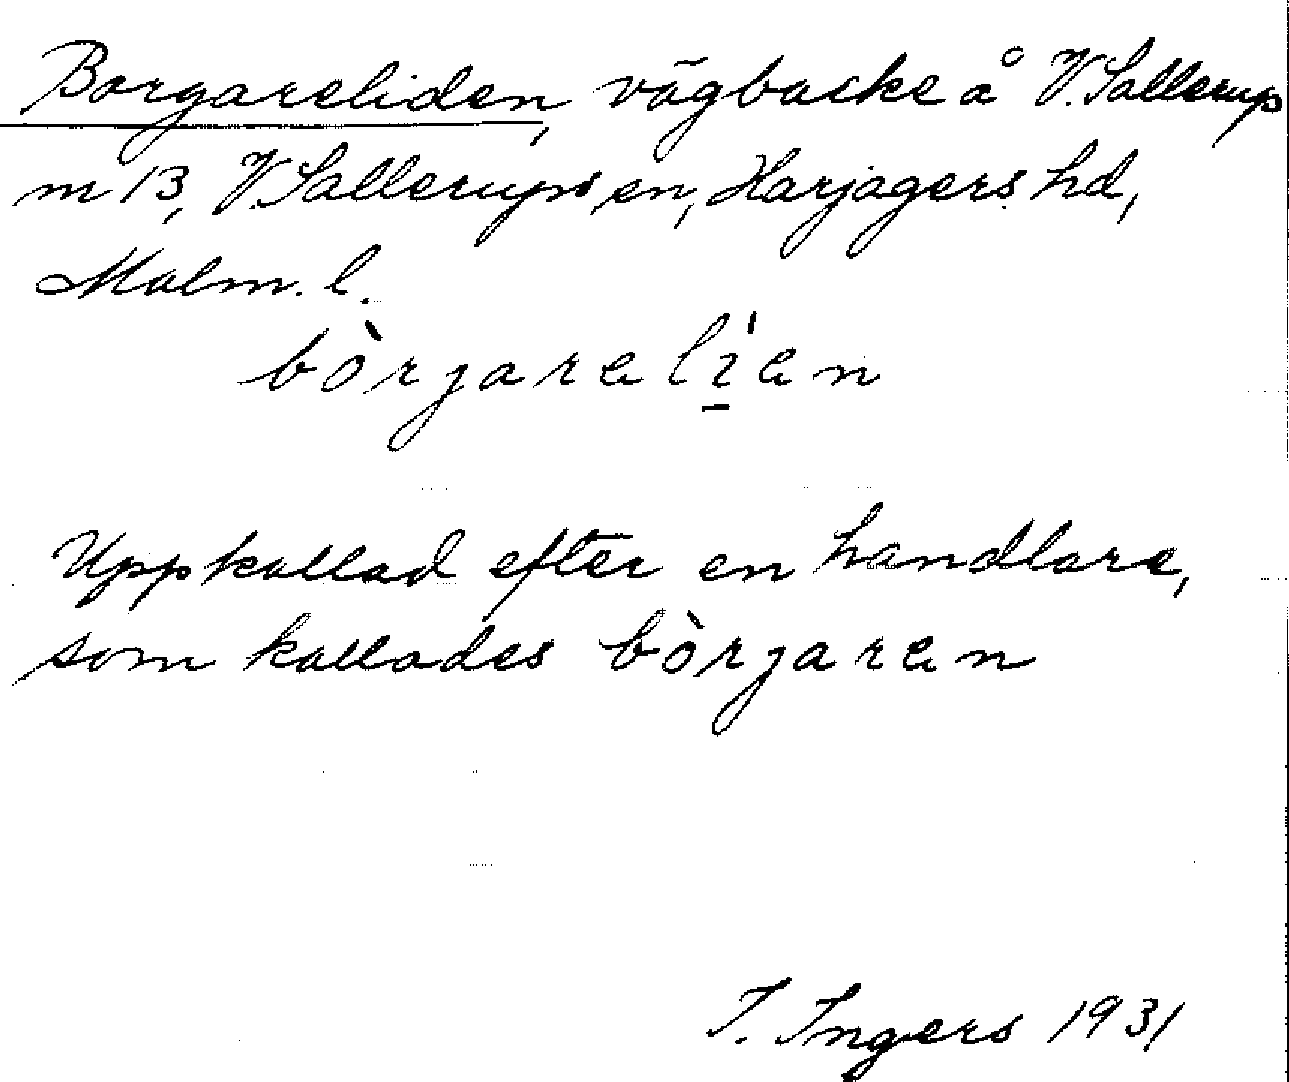 Borgareliden, vägbacke å V. Sallerup
m 13, V. Sallerups sn, Harjagers hd,
Malm. l.
bòrjareli̱'en
Uppkallad efter en handlare,
som kallades bòrjaren
I. Ingers 1931